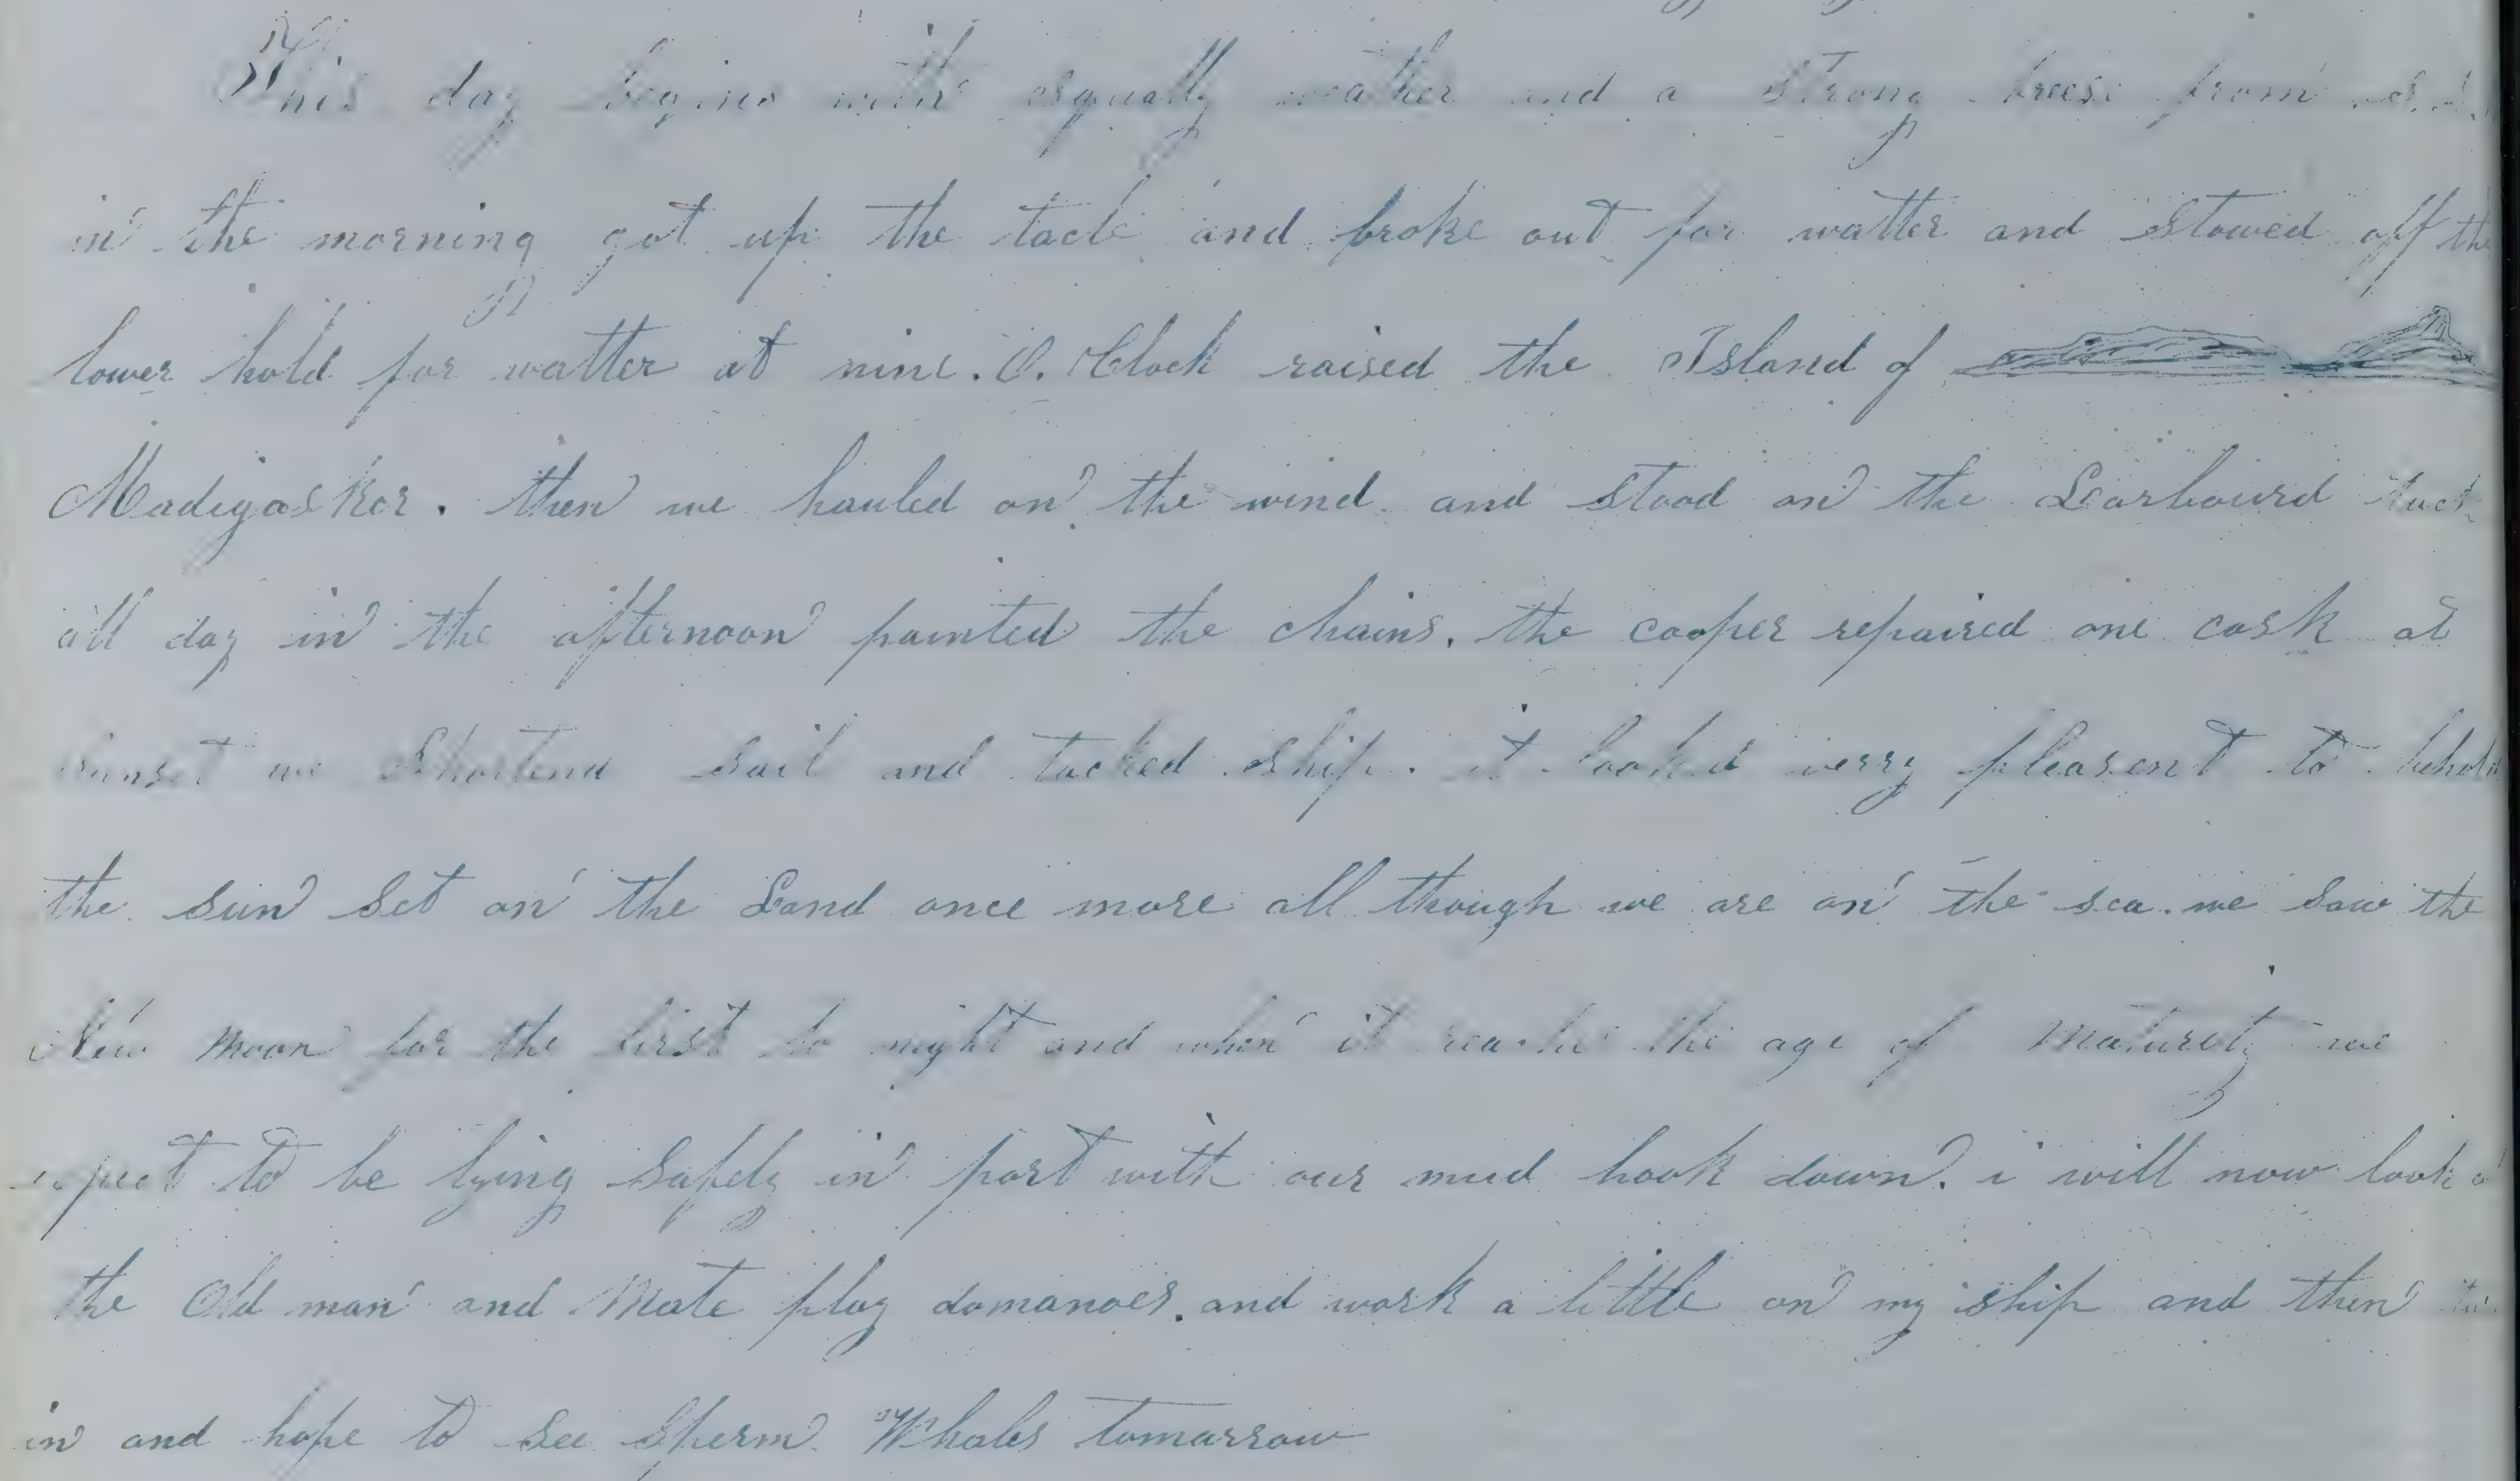 This day begins with squally weather and a strong breese from
in the morning got up the tacle and broke out for watter and Stowed off the
lower hold for watter at nine. O. Clock raised the Island of
Madigasker. then we hauled on the wind and Stood on the Larbourd tack
all day in the afternoon painted the chains. the cooper repaired one cask at
sunset we Shortend Sail and tacked Ship. it looked verry pleasent to behold
the Sun Set on the Land once more all though we are on the sea. we Saw the
New moon for the first to night and when it reaches the age of Maturety we
expect to be lying Safely in port with our mud hook down. i will now look at
the Old man and Mate play domanoes. and work a little on my Ship and then
in and hope to See Sperm Whales tomarrow